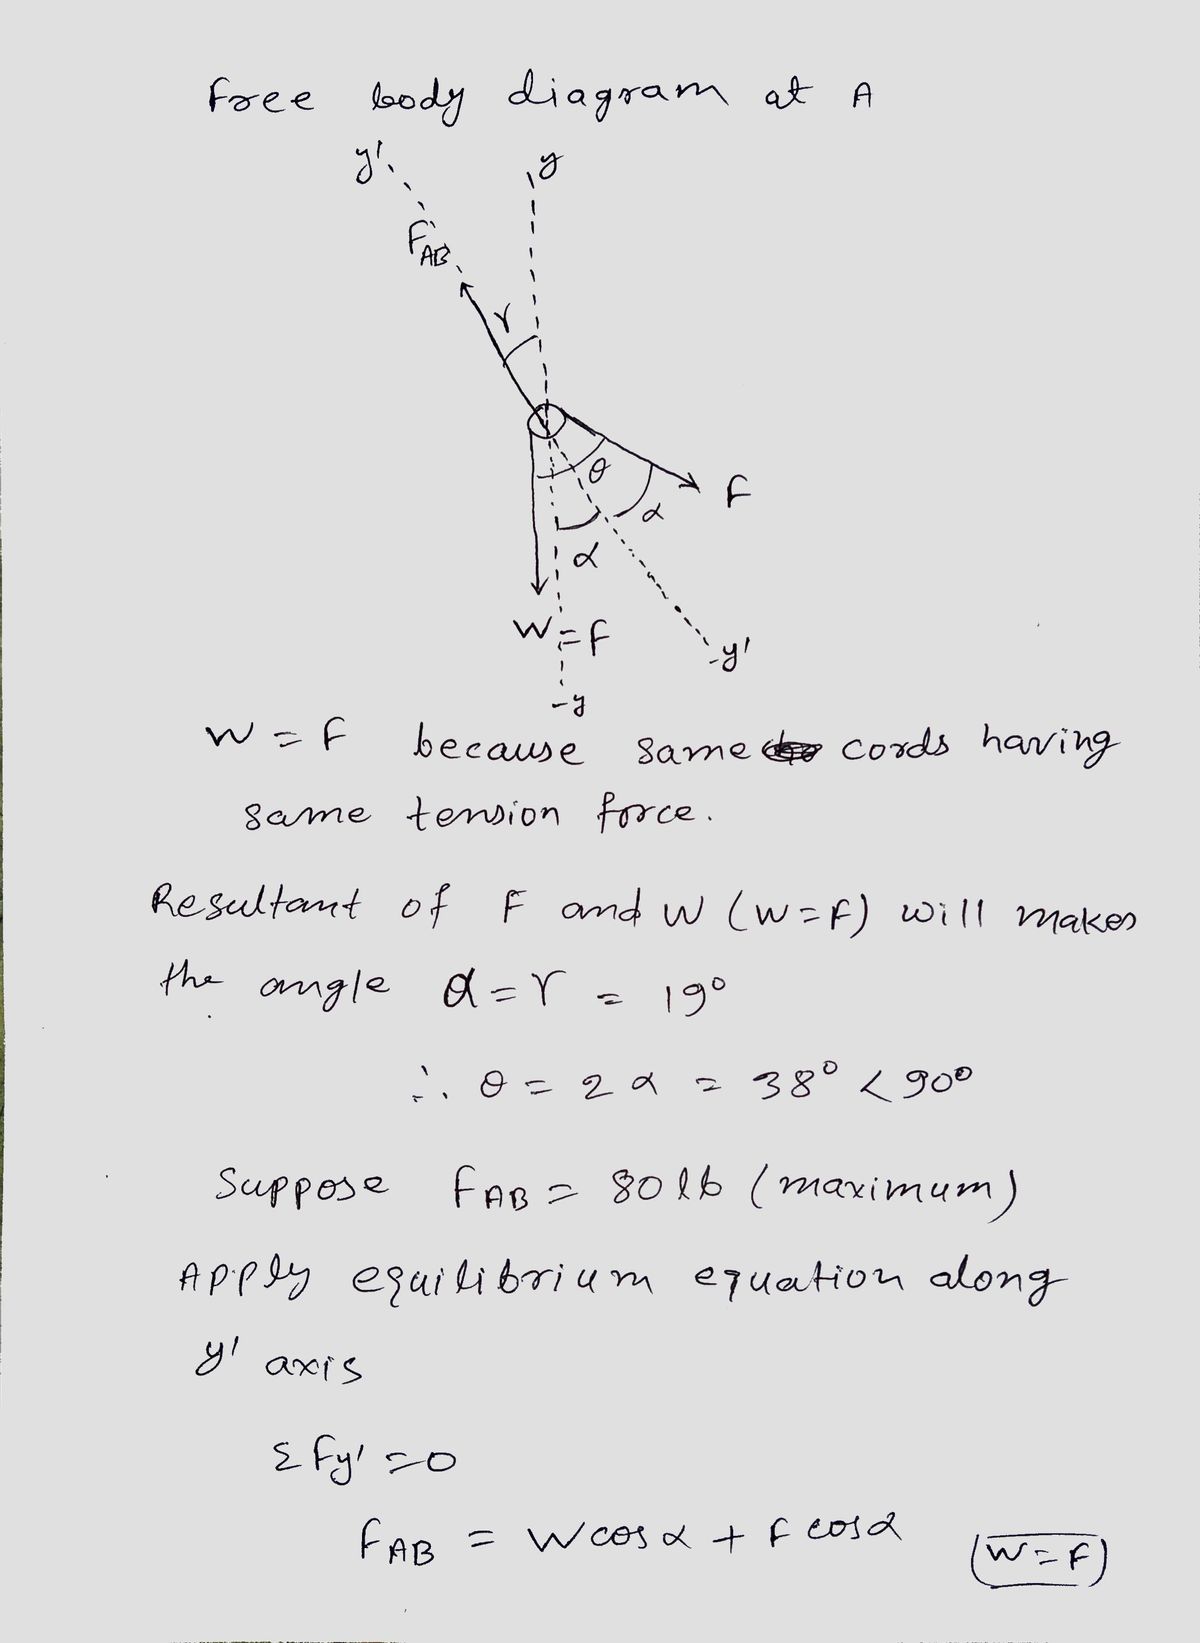 free body diagram at A
y'
y
FAB
γ
θ
F
α
α
W=F
-y'
-y
W = F because same cords having
same tension force.
Resultant of F and W (W=F) will makes
the angle α = γ = 19°
∴ θ = 2α = 38° < 90°
Suppose FAB = 80 lb (maximum)
Apply equilibrium equation along
y' axis
Σ Fy' = 0
FAB = W cos α + F cos α (W=F)